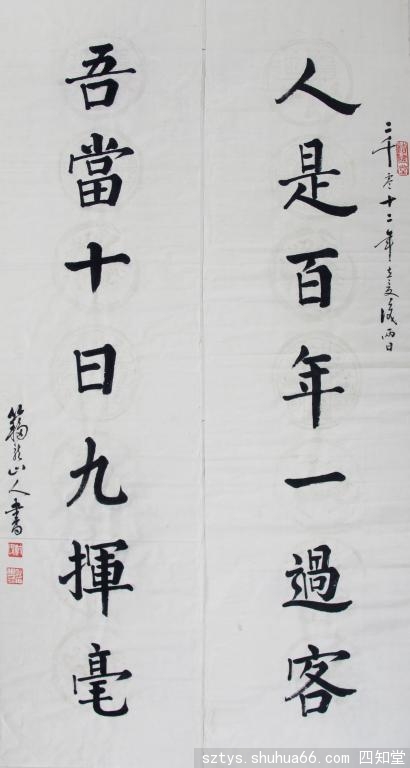 二千零十二年立夏後兩日
人是百年一過客
吾當十日九揮毫
山人書
sztys.shuhua66.com 四知堂